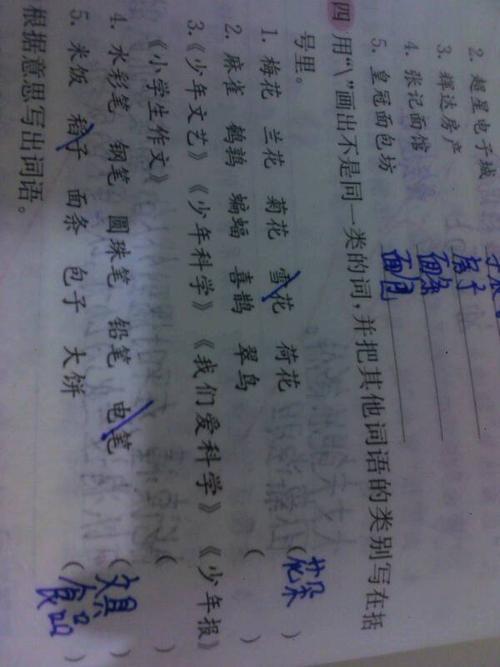 2. 超星电子城
3. 辉达房产 房子
4. 张记面馆 面条
5. 皇冠面包坊 面包
四 用“\”画出不是同一类的词,并把其他词语的类别写在括
号里。
1. 梅花 兰花 菊花 雪花 荷花 (花朵)
2. 麻雀 鹌鹑 蝙蝠 喜鹊 翠鸟 ( )
3.《少年文艺》《少年科学》《我们爱科学》《少年报》
《小学生作文》 ( )
4. 水彩笔 钢笔 圆珠笔 铅笔 电笔 (文具)
5. 米饭 稻子 面条 包子 大饼 (食品)
根据意思写出词语。